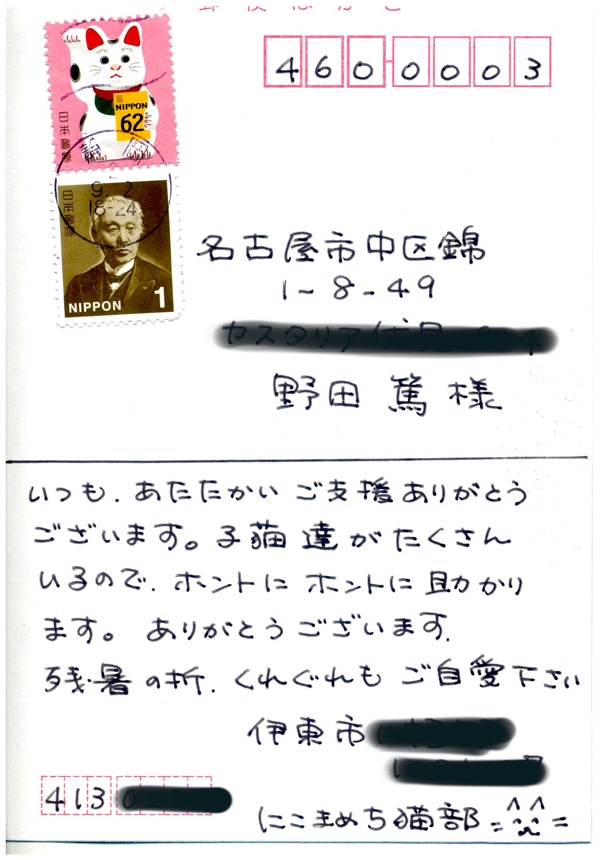 郵便はがき
460-0003
日本郵便
NIPPON
62
9.2
18-24
日本郵便
NIPPON 1
名古屋市中区錦
1-8-49
野田 篤 様
いつも、あたたかいご支援ありがとう
ございます。子猫達がたくさん
いるので、ホントにホントに助かり
ます。ありがとうございます。
残暑の折、くれぐれもご自愛下さい
伊東市
413
にこまめち猫部=^^=